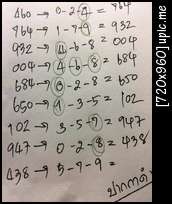 460 → 0-2-4 = 964
964 → 1-7-9 = 932
932 → 4-6-8 = 004
004 → 4-6-8 = 684
684 → 0-2-8 = 650
650 → 1-3-5 = 102
102 → 3-5-9 = 947
947 → 0-2-8 = 438
438 → 5-7-9 =
ปากกาดำ
[720x960] upic.me